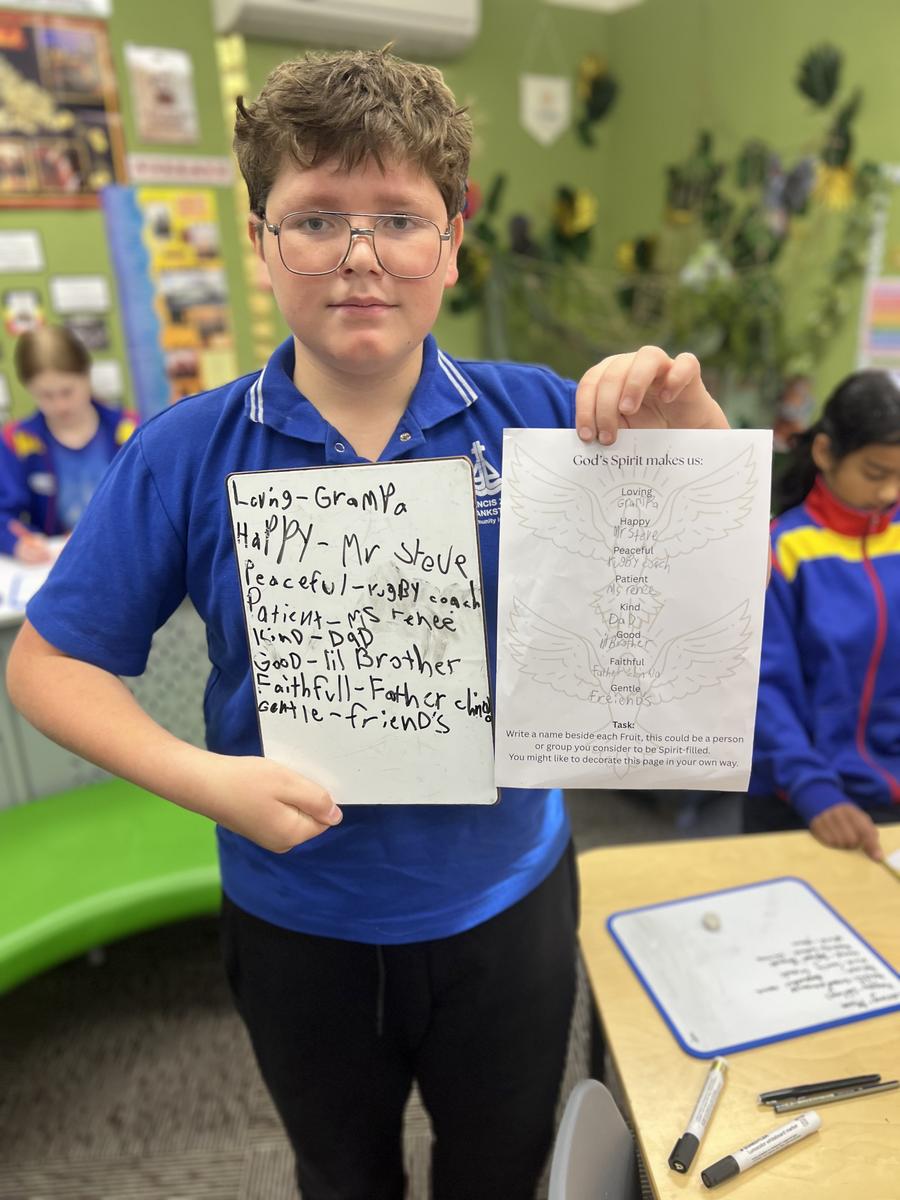 Loving-GramPa
HaPPY-Mr steve
Peaceful-rugBY coach
Patient-MS renee
KinD-DaD
GooD-lil Brother
Faithfull-Father
Gentle-friend's
God's Spirit makes us:
Loving
GramPa
Happy
Mr Steve
Peaceful
rugBY coach
Patient
MS renee
Kind
DaD
Good
lil Brother
Faithful
Father
Gentle
Freiends
Task:
Write a name beside each Fruit, this could be a person
or group you consider to be Spirit-filled.
You might like to decorate this page in your own way.